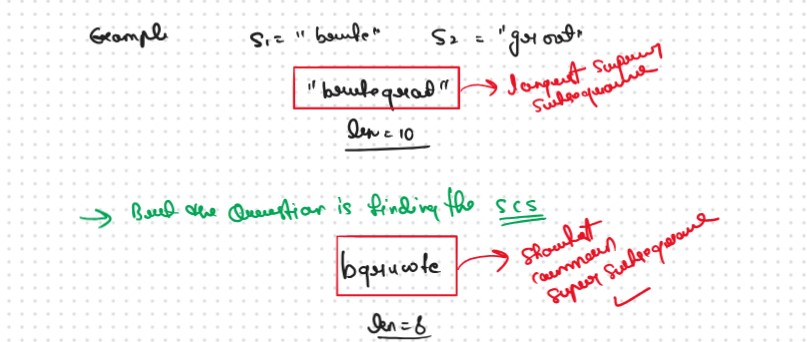 Example S₁ = "brute" S₂ = "groot"
"brutegroot" → longest super
subsequence
len = 10
→ But the Question is finding the SCS
bgruote → Shortest
common
super subsequence
len = 8